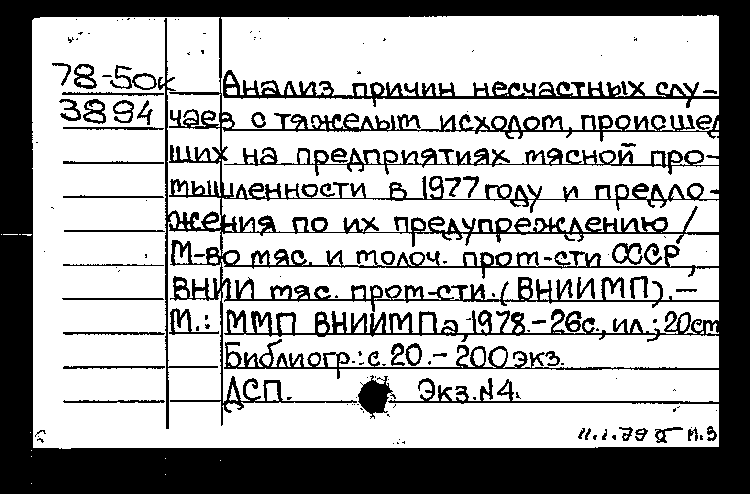 78-50к Анализ причин несчастных слу-
3894 чаев с тяжелым исходом, происшед
ших на предприятиях мясной про-
мышленности в 1977 году и предло-
жения по их предупреждению /
М-во мяс. и молоч. пром-сти СССР,
ВНИИ мяс. пром-сти. (ВНИИМП). —
М.: ММП ВНИИМПа, 1978. - 26с., ил.; 20см
Библиогр.: с. 20. - 200 экз.
ДСП. Экз. №4.
11.1.79